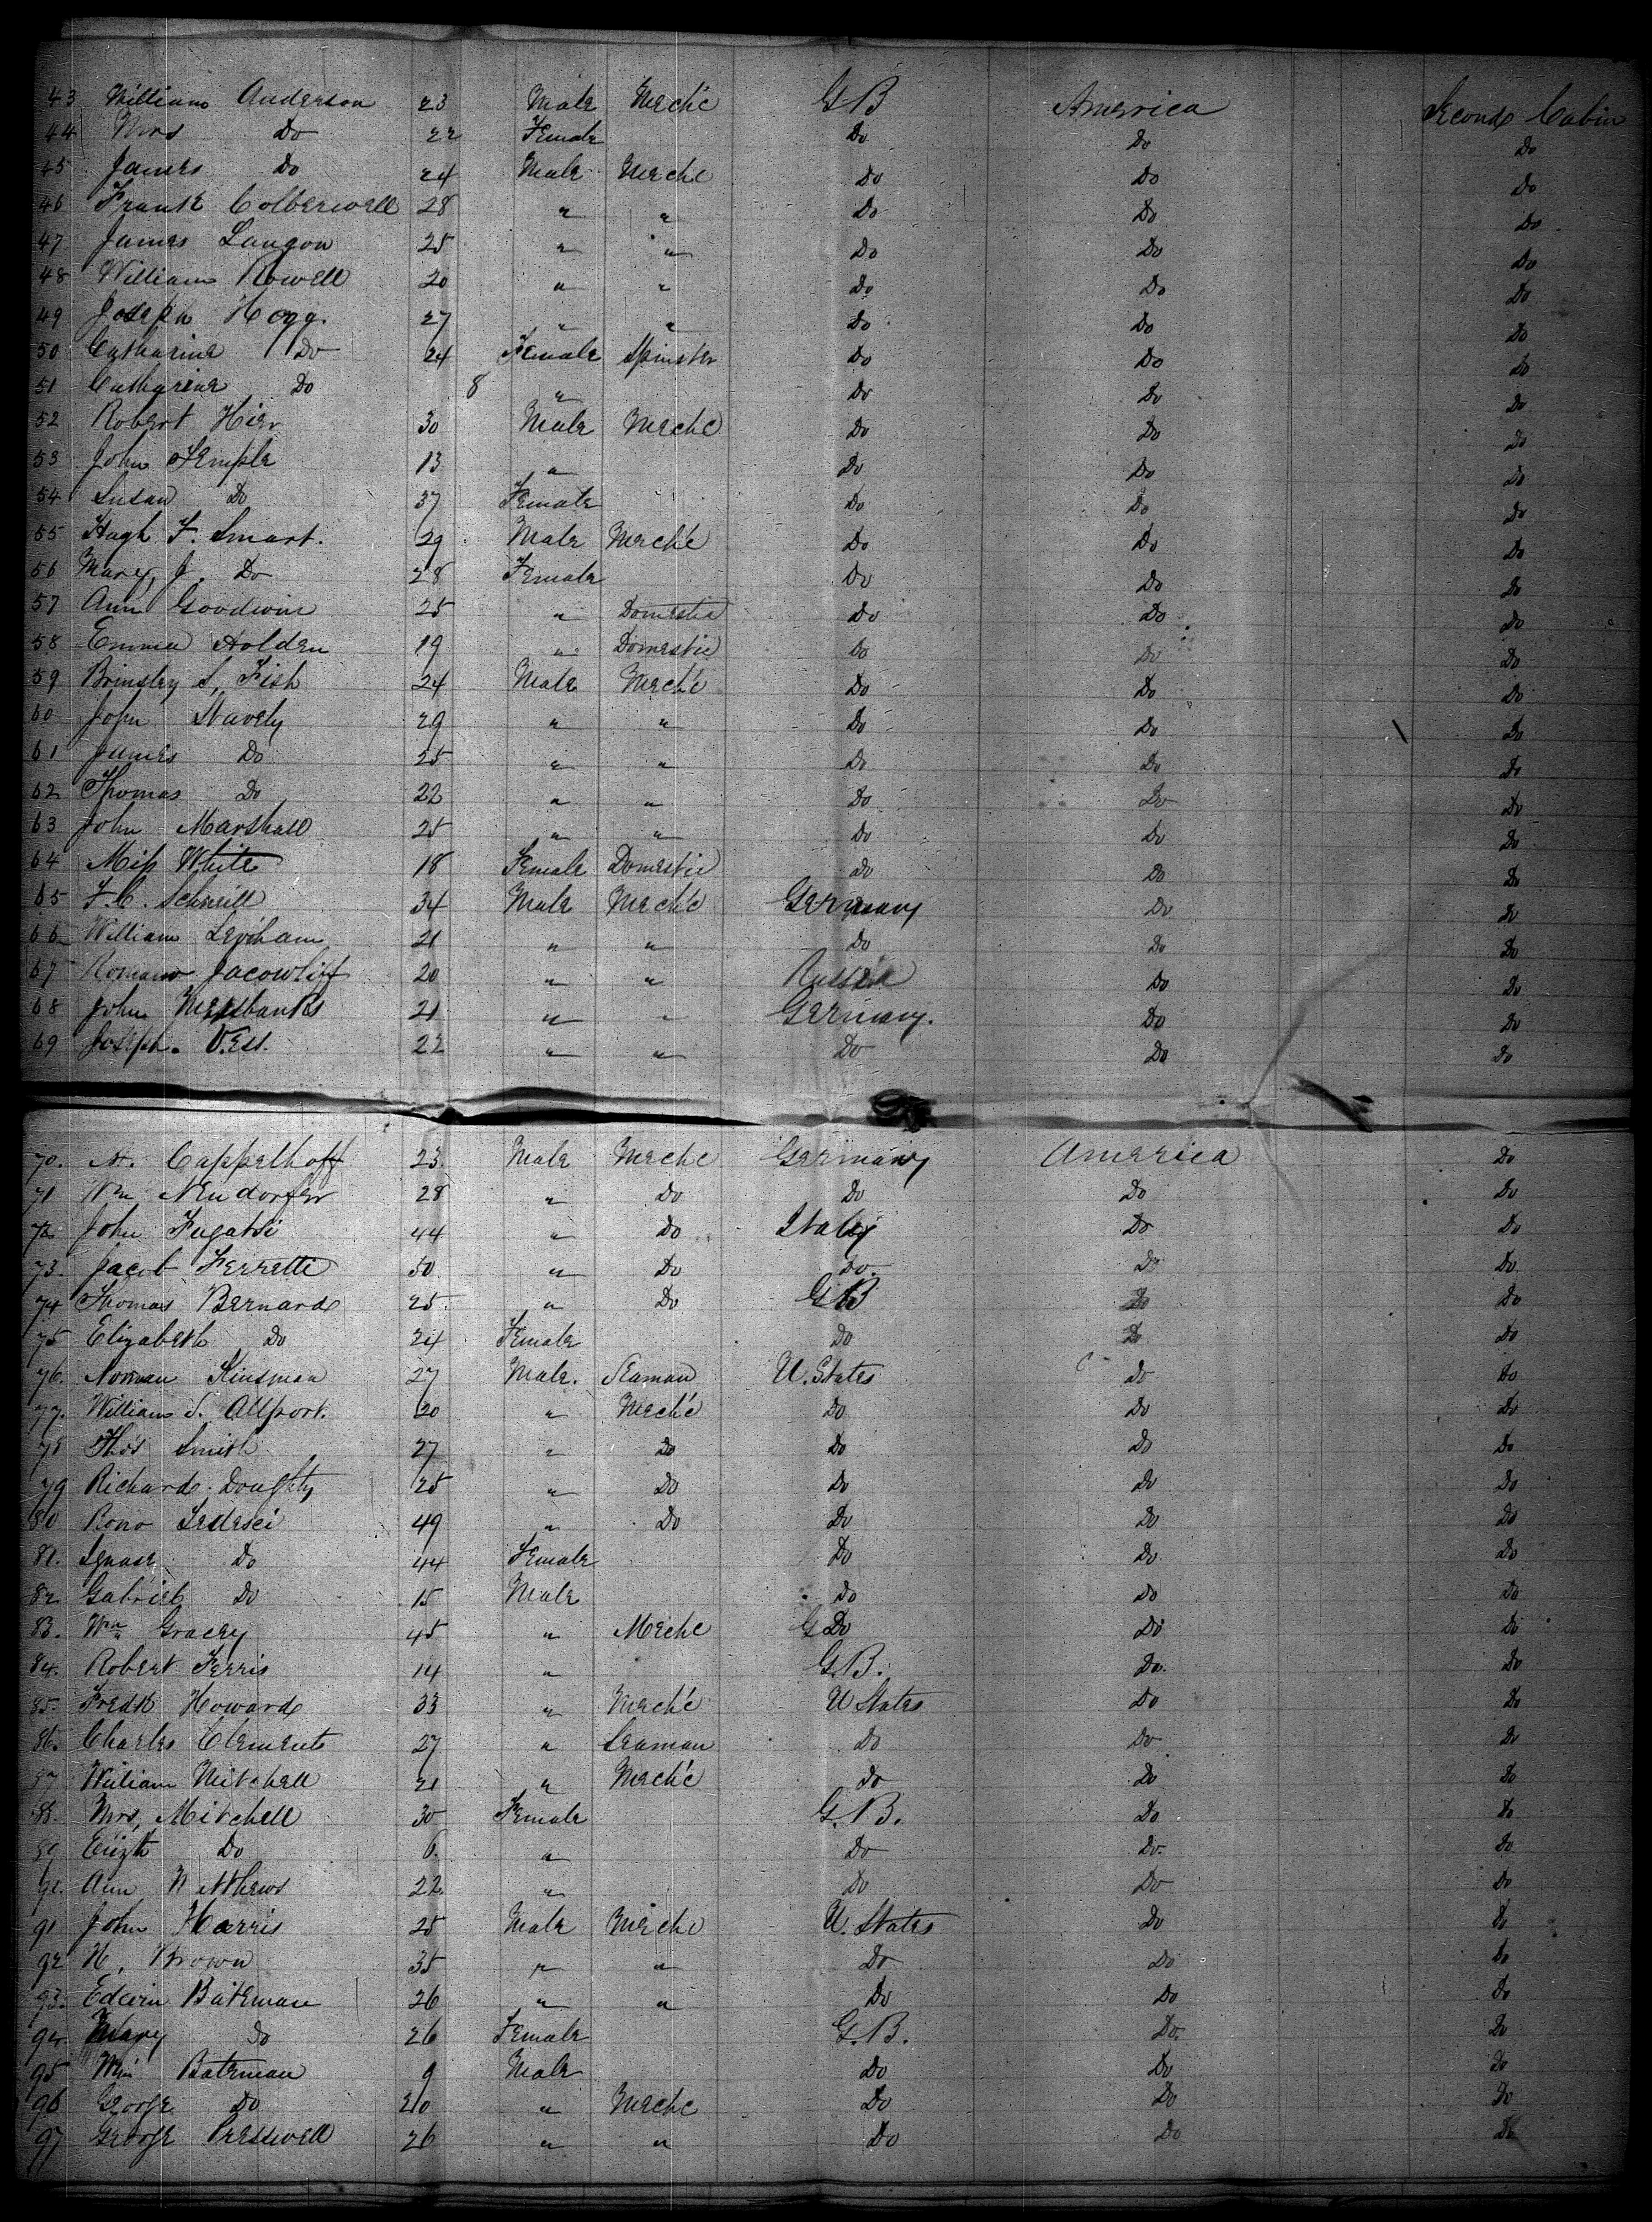 43 William Anderson 23 Male Mech'c GB America Second Cabin
44 Mrs Do 22 Female Do Do Do
45 James Do 24 Male Mechc Do Do Do
46 Frank Colberwell 28 " " Do Do Do
47 James Langon 25 " " Do Do Do
48 William Rowell 20 " " Do Do Do
49 Joseph Hogg. 27 " " Do Do Do
50 Catharine Do 24 Female Spinster Do Do Do
51 Catharine Do 8 " Do Do Do
52 Robert Hier 30 Male Mechc Do Do Do
53 John Semple 13 " Do Do Do
54 Susan Do 37 Female Do Do Do
55 Hugh F. Smart. 29 Male Mech'c Do Do Do
56 Mary, J. Do 28 Female Do Do Do
57 Ann Goodwin 25 " Domestic Do Do Do
58 Emma Holden 19 " Domestic Do Do Do
59 Brinsley S, Fish 24 Male Mech'c Do Do Do
60 John Stavely 29 " " Do Do Do
61 James Do 25 " " Do Do Do
62 Thomas Do 22 " " Do Do Do
63 John Marshall 25 " " Do Do Do
64 Miss White 18 Female Domestic do Do Do
65 F. C. 34 Male Mech'c Germany Do Do
66 William 21 " " Do Do Do
67 Romano 20 " " Russia Do Do
68 John 21 " " Germany. Do Do
69 Joseph. 22 " " Do Do Do
70. Cappelhoff 23. Male Mechc Germany America Do
71 Wm Neudorfer 28 " Do Do Do Do
72 John 44 " Do Italy Do Do
73. Jacob Ferrette 50 " Do Do. Do Do
74 Thomas Bernard 25. " Do GB Do Do
75 Elizabeth Do 24 Female Do Do Do
76. Norman Kinsman 27 Male. Seaman U. States Do Do
77. William S. Allport. 20 " Mech'c Do Do Do
78 Thos Smith 27 " Do Do Do Do
79 Richard Doughty 25 " Do Do Do Do
80 49 " Do Do Do Do
81. Do 44 Female Do Do Do
82 Gabriel Do 15 Male Do Do Do
83. Wm Gracey 45 " Mechc G Do Do Do
84. Robert Ferris 14 " G.B. Do. Do
85. Fredk Howard 33 " Mech'c U States Do Do
86. Charles Clements 27 " Seaman Do Do Do
87 William Mitchell 21 " Mech'c do Do Do
88. Mrs, Mitchell 30 Female G. B. Do Do
89 Elizth Do 6. " Do Do. Do
90. Ann 22. " Do Do Do
91 John Harris 25 Male Mechc U. States Do Do
92 H. Brown 35 " " Do Do Do
93. Edwin Bateman 26 " " Do Do Do
94. Mary Do 26 Female G. B. Do. Do
95 Wm Bateman 9 Male Do Do Do
96 George Do 20 " Mechc Do Do Do
97 George Presswell 26 " " Do Do Do